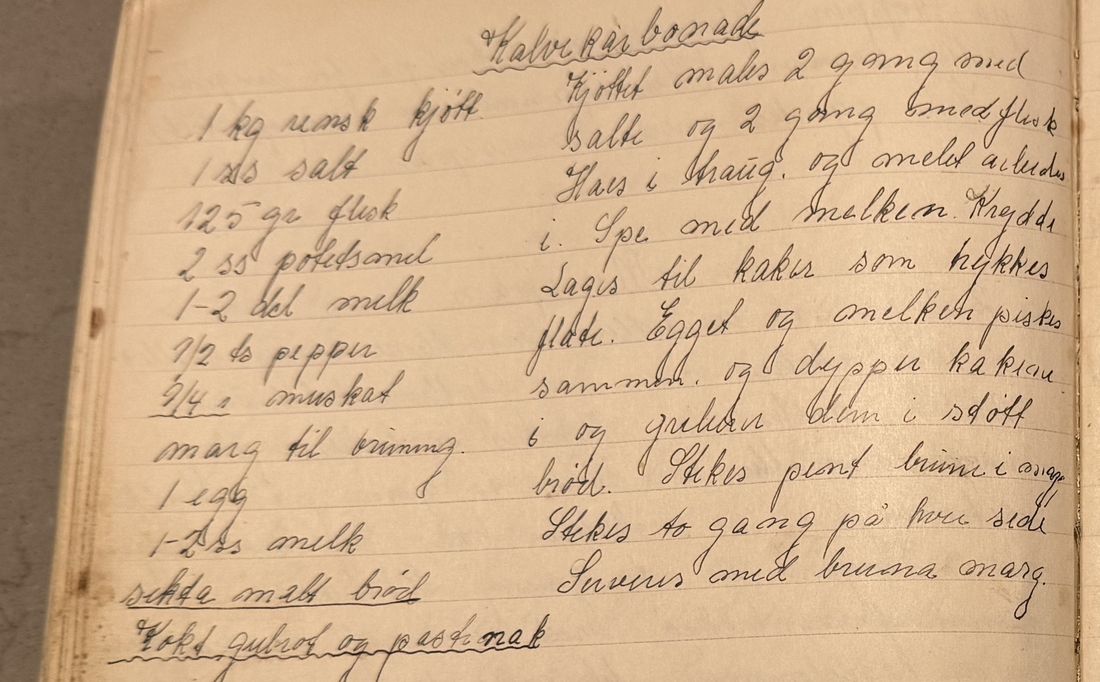 Kalvekarbonade
1 kg rensk kjött.
1 ss salt
125 gr flesk
2 ss potetsmel
1-2 del melk
1/2 ts pepper
1/4 " muskat
marg til bruning.
1 egg
1-2 ss melk
sikta malt bröd
Kokt gulrot og pastinak
Kjöttet males 2 gang med
salte og 2 gang med flesk
Haes i traug. og melet arbeides
i. Spe med melken. Krydde
Lages til kaker som trykkes
flate. Egget og melken piskes
sammen. og dypper kakene
i og den i stött
bröd. Stekes pent brun i marg,
Stekes to gang på hver side
Serveres med bruna marg.